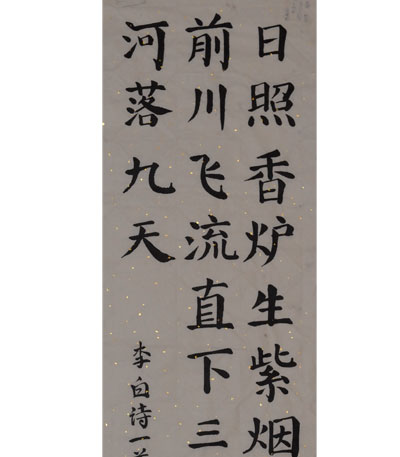 日照香炉生紫烟
前川飞流直下三
河落九天
李白诗一首